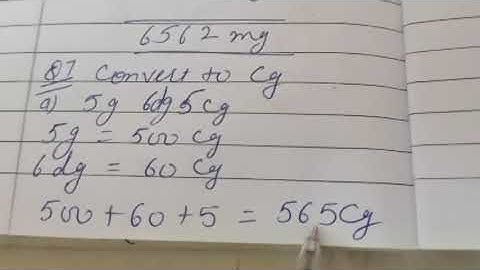 6562 mg
Q7 Convert to Cg
a) 5g 6dg 5cg
5g = 500 Cg
6dg = 60 Cg
500 + 60 + 5 = 565Cg